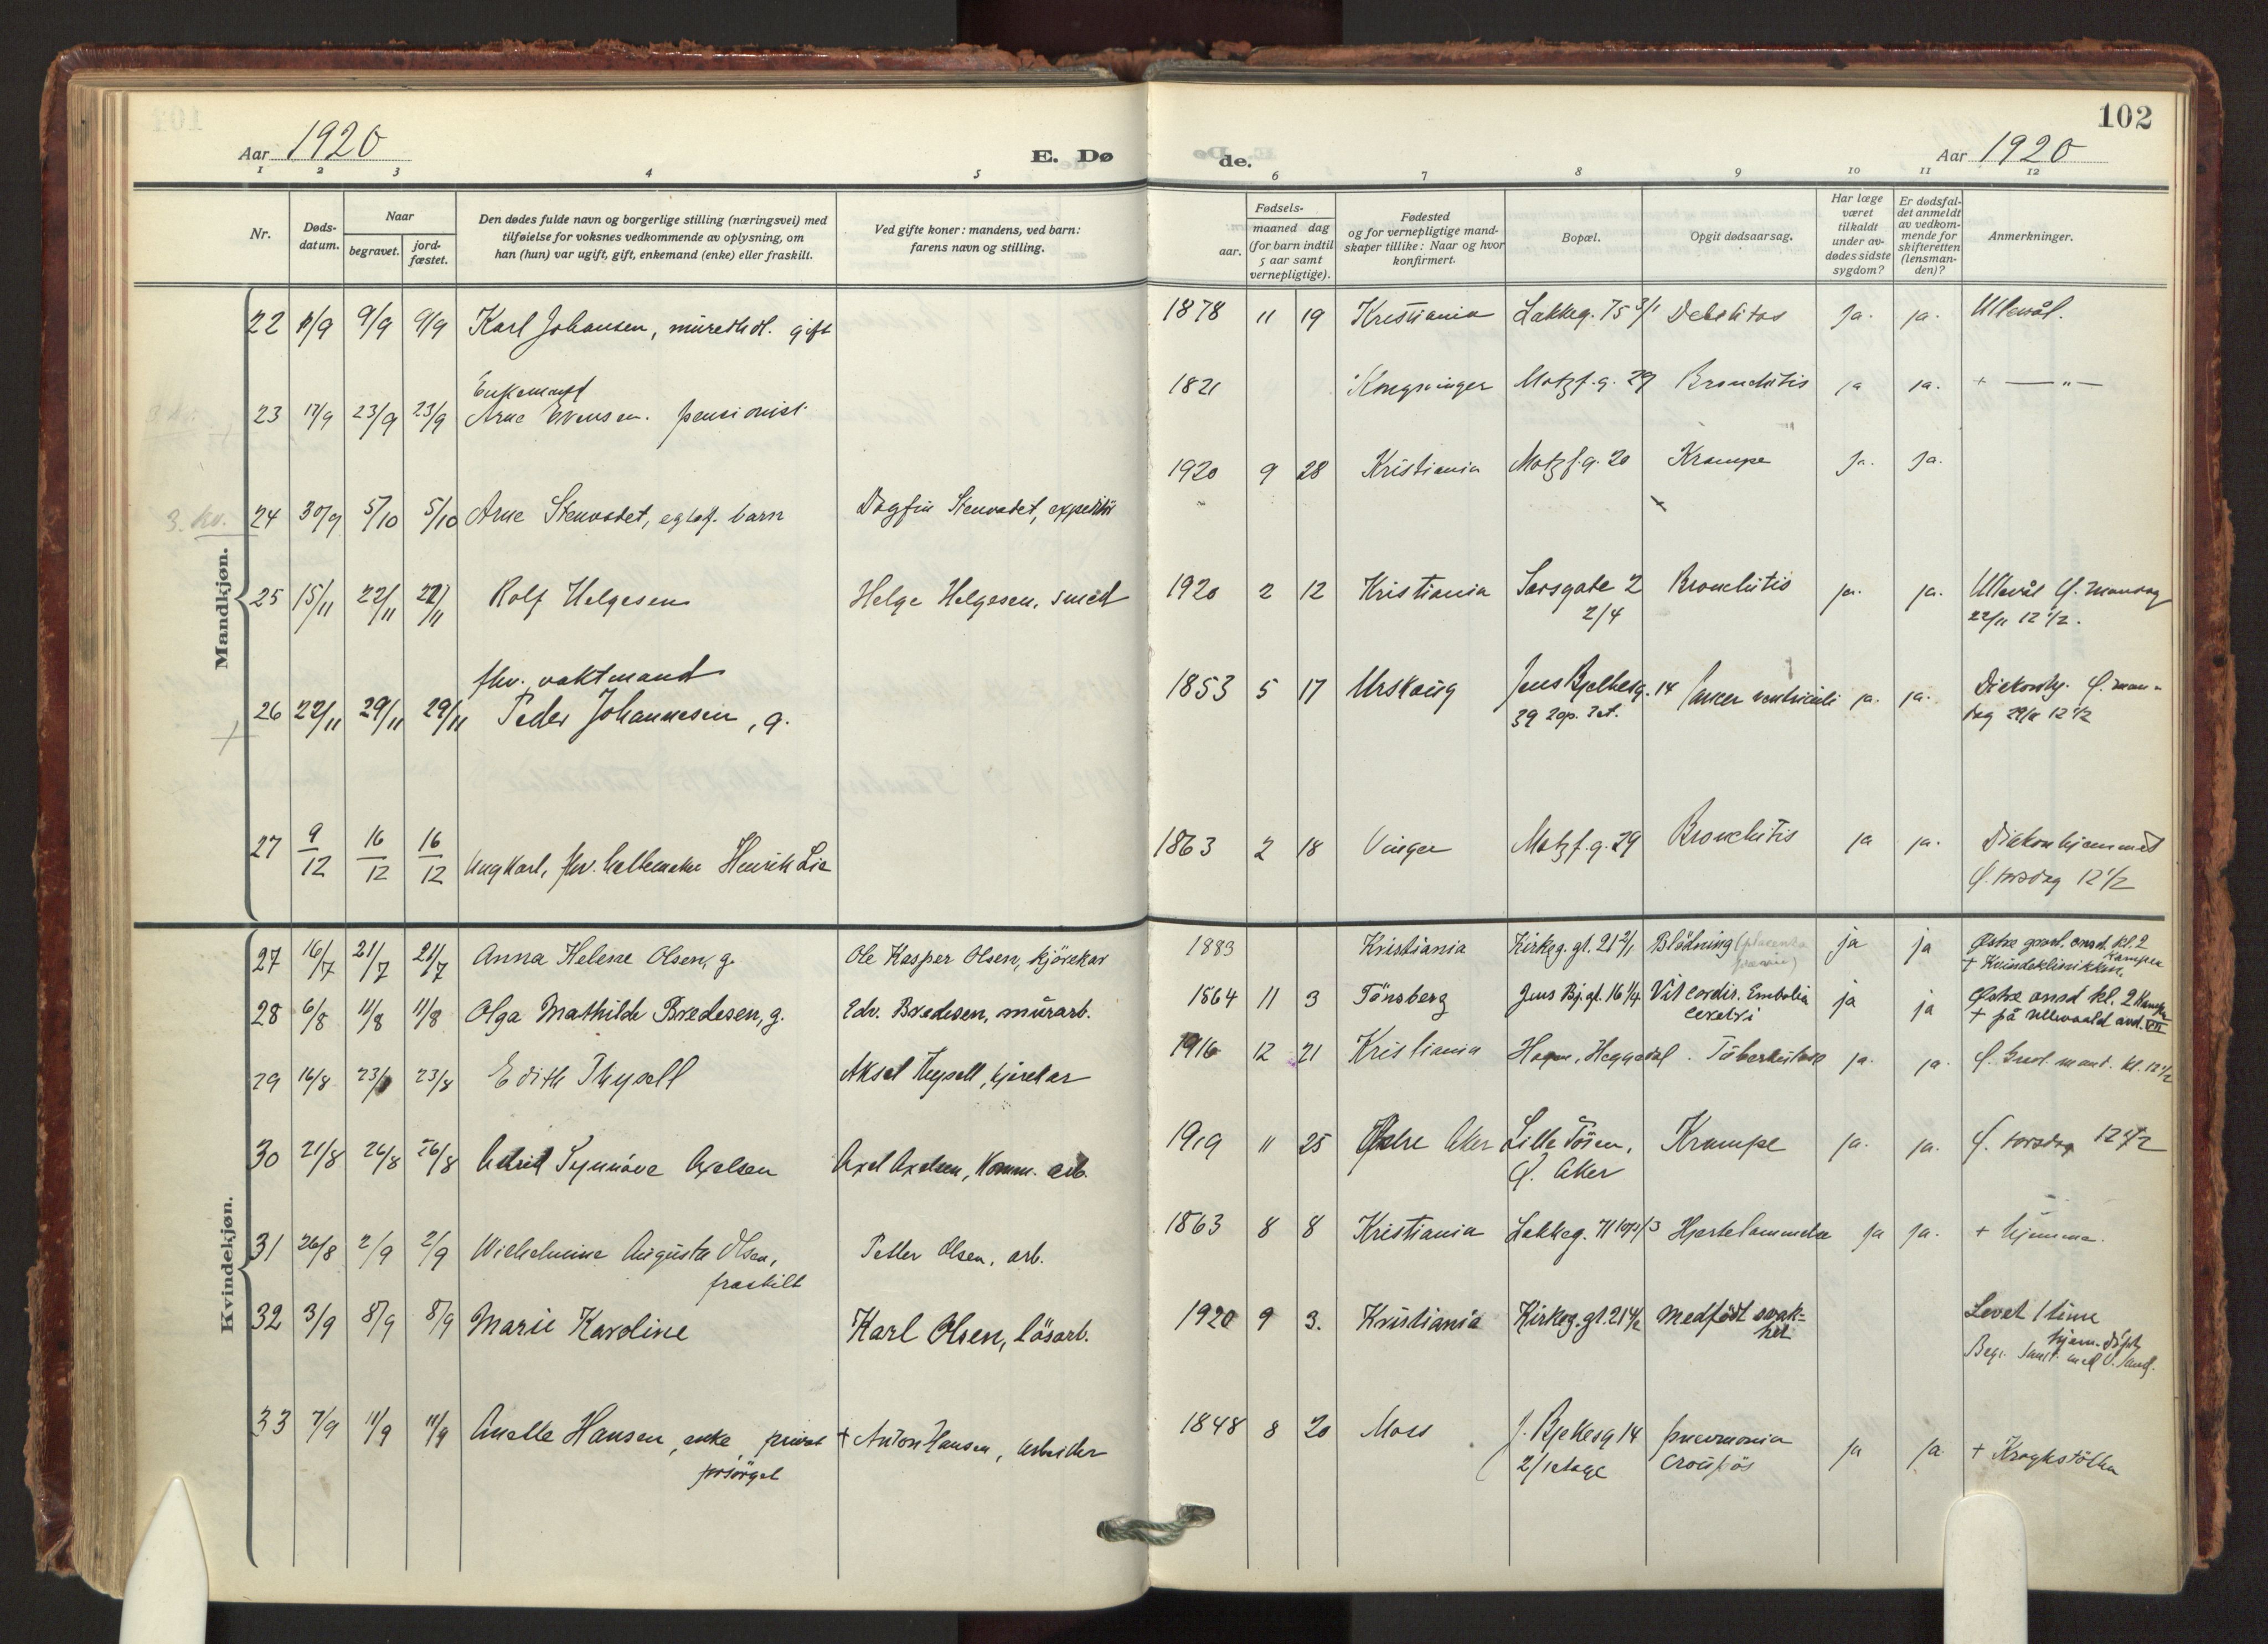 102
Aar 1920
E. Dø
de.
Aar 1920
1 2 3 4 5 6 7 8 9 10 11 12
Nr.
Døds-
datum.
Naar
begravet.
jord-
fæstet.
Den dødes fulde navn og borgerlige stilling (næringsvei) med
tilføielse for voksnes vedkommende av oplysning, om
han (hun) var ugift, gift, enkemand (enke) eller fraskilt.
Ved gifte koner: mandens, ved barn:
farens navn og stilling.
Fødsels-
aar.
maaned dag
(for barn indtil
5 aar samt
vernepligtige).
Fødested
og for vernepligtige mand-
skaper tillike: Naar og hvor
konfirmert.
Bopæl.
Opgit dødsaarsag.
Har læge
været
tilkaldt
under av-
dødes sidste
sygdom?
Er dødsfal-
det anmeldt
av vedkom-
mende for
skifteretten
(lensman-
den)?
Anmerkninger.
Mandkjøn.
22 9/9 9/9 Karl Johansen, gift 1878 11 19 Kristiania Lakkeg. 75 3/1 Debilitas Ja. ja. Ullevål.
Enkemand
23 17/9 23/9 23/9 Arne Evensen. pensionist 1821 Kongsvinger Motzf.g. 29 Bronchitis ja ja. + — „ —
3. kv.
24 30/9 5/10 5/10 Arne Stenvadet, barn Dagfin Stenvadet, 1920 9 28 Kristiania Motzf.g. 20 Krampe Ja. Ja.
25 15/11 22/11 22/11 Rolf Helgesen Helge Helgesen, smed 1920 2 12 Kristiania Sarsgate 2 Bronchitis ja. ja. Ullevål Ø. mandag
2/4 22/11 12 1/2.
fhv. vaktmand
26 22/11 29/11 29/11 Peder Johannesen, g. 1853 5 17 Urskoug 14 Cancer ventriculi ja. ja. Ø. man-
39 2op. dag 29/11 12 1/2
27 9/12 16/12 16/12 Ungkarl, fhv. Henrik Lie 1863 2 18 Vinger Motzf.g. 29 Bronchitis ja ja. Diakonhjemmet
Ø. torsdag 12 1/2
Kvindekjøn.
27 16/7 21/7 21/7 Anna Helene Olsen, g. Ole Kasper Olsen, kjörekar 1883 Kristiania Kirkeg. gt. 21 2/1 Blödning (placenta ja ja Østre gravl. onsd. kl. 2
prævia) Kampen
+ Kvindeklinikken.
28 6/8 11/8 11/8 Olga Mathilde Bredesen, g. Edv. Bredesen, mürarb. 1864 11 3 Tönsberg Jens Bj. gt. 16 1/4 Vit. cordis. Embolia ja ja Østre onsd kl. 2 Kampen
cerebri + på Ullevaald avd. VII
29 16/8 23/8 23/8 Edith Thysell Aksel Thysell, kjörekar 1916 12 21 Kristiania Heggedal. Tüberkülose ja. ja. kl. 12 1/2
30 21/8 26/8 26/8 Astrid Synnöve Axelsen Axel Axelsen, Komm. arb. 1919 11 25 Østre Aker Lille Töien, Krampe ja. ja. Ø. torsdag 12 1/2
Ø. Aker
31 26/8 2/9 2/9 Wilhelmine Augusta Olsen, Petter Olsen, arb. 1863 8 8 Kristiania Lakkeg. 71 Hjertelammelse ja ja. + hjemme.
fraskilt
32 3/9 8/9 8/9 Marie Karoline Karl Olsen, lösarb. 1920 9 3. Kristiania Kirkeg. gt. 21 4/2 Medfödt svak-
het Levet 1 time
hjem. döpt
33 7/9 11/9 11/9 Anette Hansen, enke, privat + Anton Hansen, arbeider 1848 8 20 Moss J. Bjelkesg 14 pneumonia ja ja +
forsörget 2/1 etage croüpös